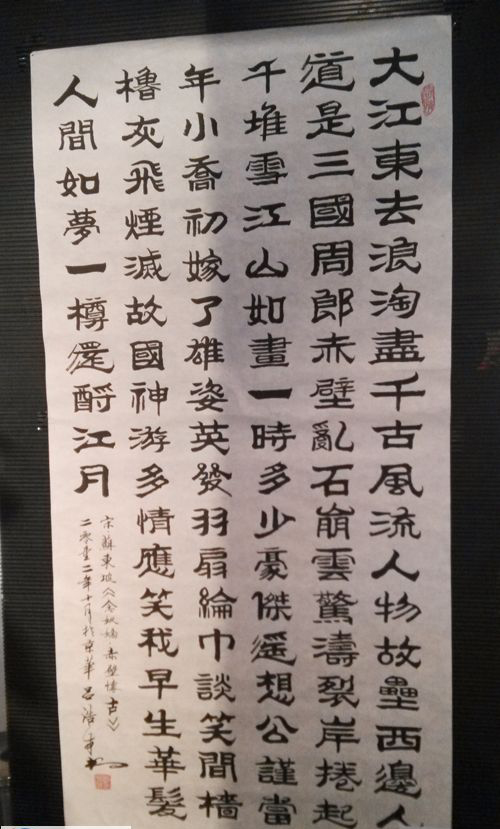 大江東去浪淘盡千古風流人物故壘西邊人
道是三國周郎赤壁亂石崩雲驚濤裂岸捲起
千堆雪江山如畫一時多少豪傑遥想公謹當
年小喬初嫁了雄姿英發羽扇綸巾談笑間檣
櫓灰飛煙滅故國神游多情應笑我早生華髮
人間如夢一樽還酹江月
宋蘇東坡《念奴嬌赤壁懷古》
二零壹二年十月於京華呂浩